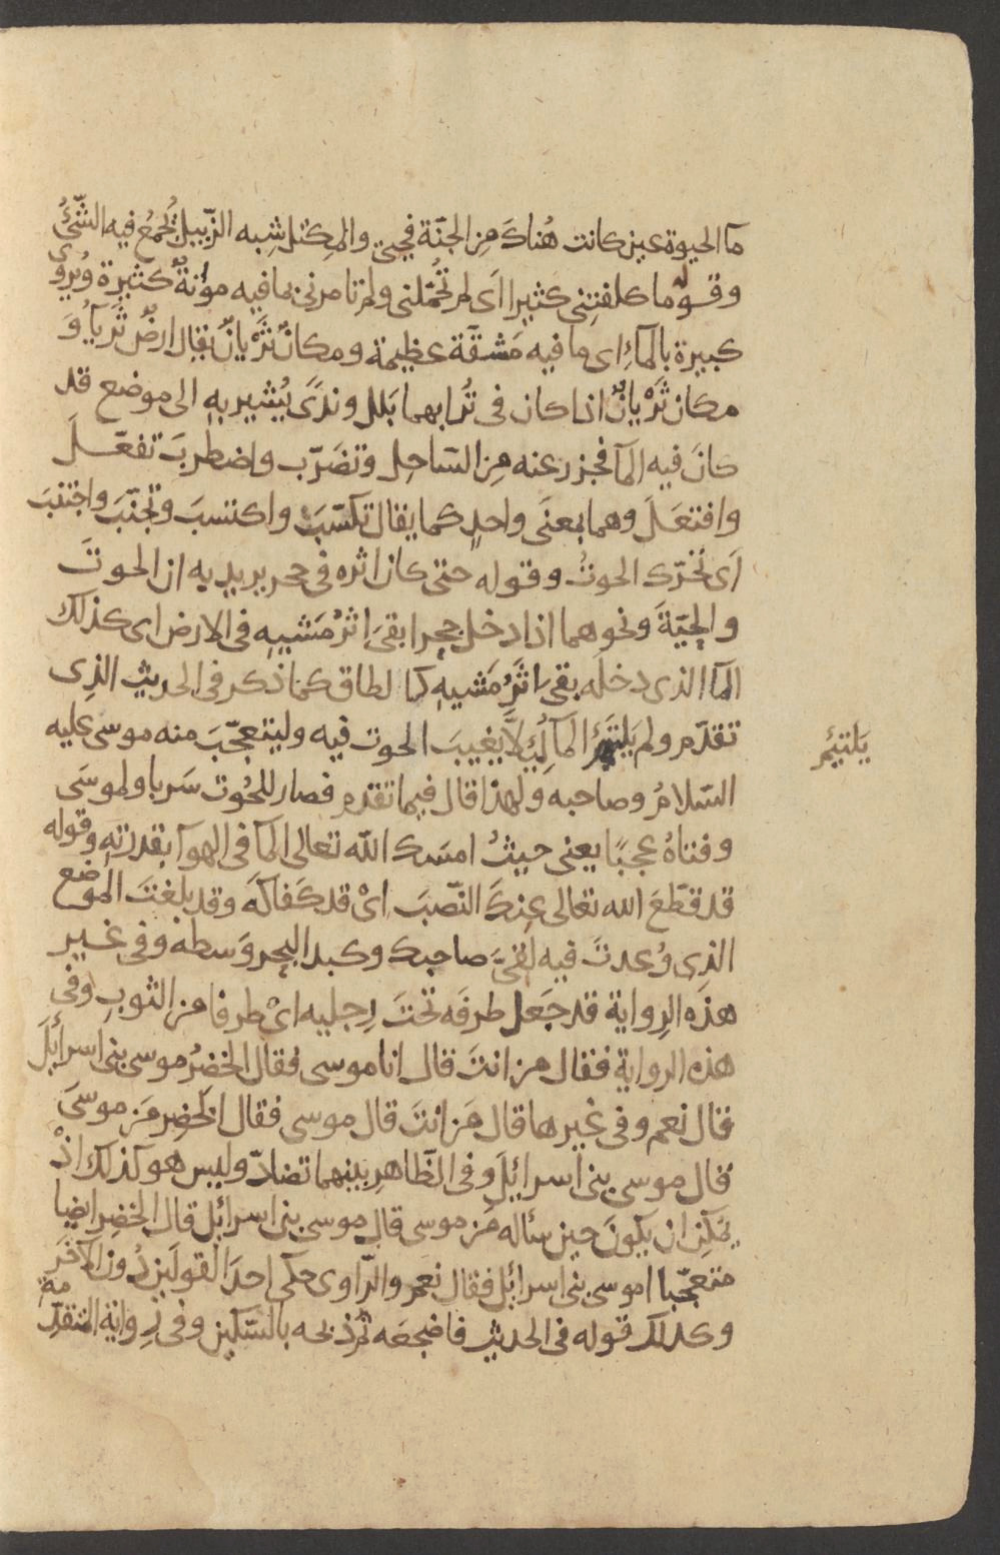 مآ الحيوة عين كانت هُناكَ مِن الجنّة فحيى والمِكتل شِبه الزّبيل يُجمعُ فيه الشّئُ
وقوله ما كلفتِنى كثيرا اَى لم تُحمّلنى ولم تا مرنى بما فيه مؤنةٌ كثيرة ويُروى
كبيرة بالبآءِ اى ما فيه مَشقّة عظيمة ومكانٌ ثَرْيانٌ يقال ارضٌ ثَريآُ وَ
مكان ثَرْيانٌ اذا كان فى تُرابهما بَلل وندًى يُشير بهِ الى موضع قد
كانَ فيه المآ فجزر عنه مِن السّاحِل وتضَرّب واضطربَ تفعّلَ
وافتعَلَ وهما بمعنَى واحدٍ كما يقال تكسّبَ واكتسبَ وتجنّبَ واجتنبَ
اَى تحرّك الحوتُ وقوله حتى كان اثره فى حجر يريد به ان الحوتَ
والحيّةَ ونحوهما اذا دخل حجرا بقىَ اثرُ مَشيهِ فى الارض اى كذلك
المآ الذى دخله بقىَ اثَرُ مَشيهِ كا لطاق كما ذكر فى الحديث الذِى
تقدّم ولم يَلتئم المآ لِئَلاَّ يغيبَ الحوت فيه وليتعجّبَ منه موسى عليه
يَلتئِم
السّلامُ وصاحبه ولهذا قال فيما تقدم فصار للحُوت سَربا ولموسَى
وفتاهُ عجبًا يعنى حيثُ امسَك الله تعالى المآ فى الهوآ بقدرتهِ وقوله
قد قطّعَ الله تعالى عِنكَ النّصَبَ اىْ قد كَفاكَهَ وقد بلغتَ الموضع
الذِى وُعدتَ فيه لقىَ صاحبك وكبد البحر وَسطه وفى غير
هذه الرِواية قد جَعل طرفَه تحتَ رِجليه اىْ طرفا من الثوبِ وفى
هذه الرواية فقال من انتَ قال انا موسى فقال الخضرُ موسى بنى اسرائلَ
قال نعم وفى غيرها قال مَن انتَ قال موسى فقال الخَضِر مَن موسَى
قال موسى بنى اسرائيلَ وفى الظّاهرِ بينهما تضادّ وليس هو كذلك اذْ
يمكن ان يكونَ حين سئاله مَن موسى قال موسى بنى اسرائل قال الخضِر ايضا
متعجّبا اموسى بنى اسرائل فقال نعم والرّاوى حكى احدَ القولَين دُون الآخَر
وكذلك قوله فى الحديث فاضجعَه ثم ذبحه بالسّكين وفى رِواية المتقدّمةِ